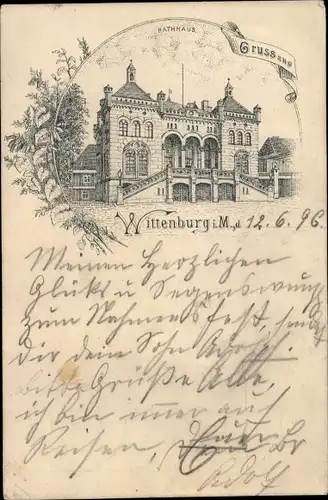 RATHHAUS.
Gruss aus
Wittenburg i. M., d 12.6.96
Meinen Herzlichen
Glücks u Segenswunsch
zum Nahmensfest, send
dir dein Sohn Adolf
bitte Grüße Alle,
ich bin immer auf
Reisen,
Adolf